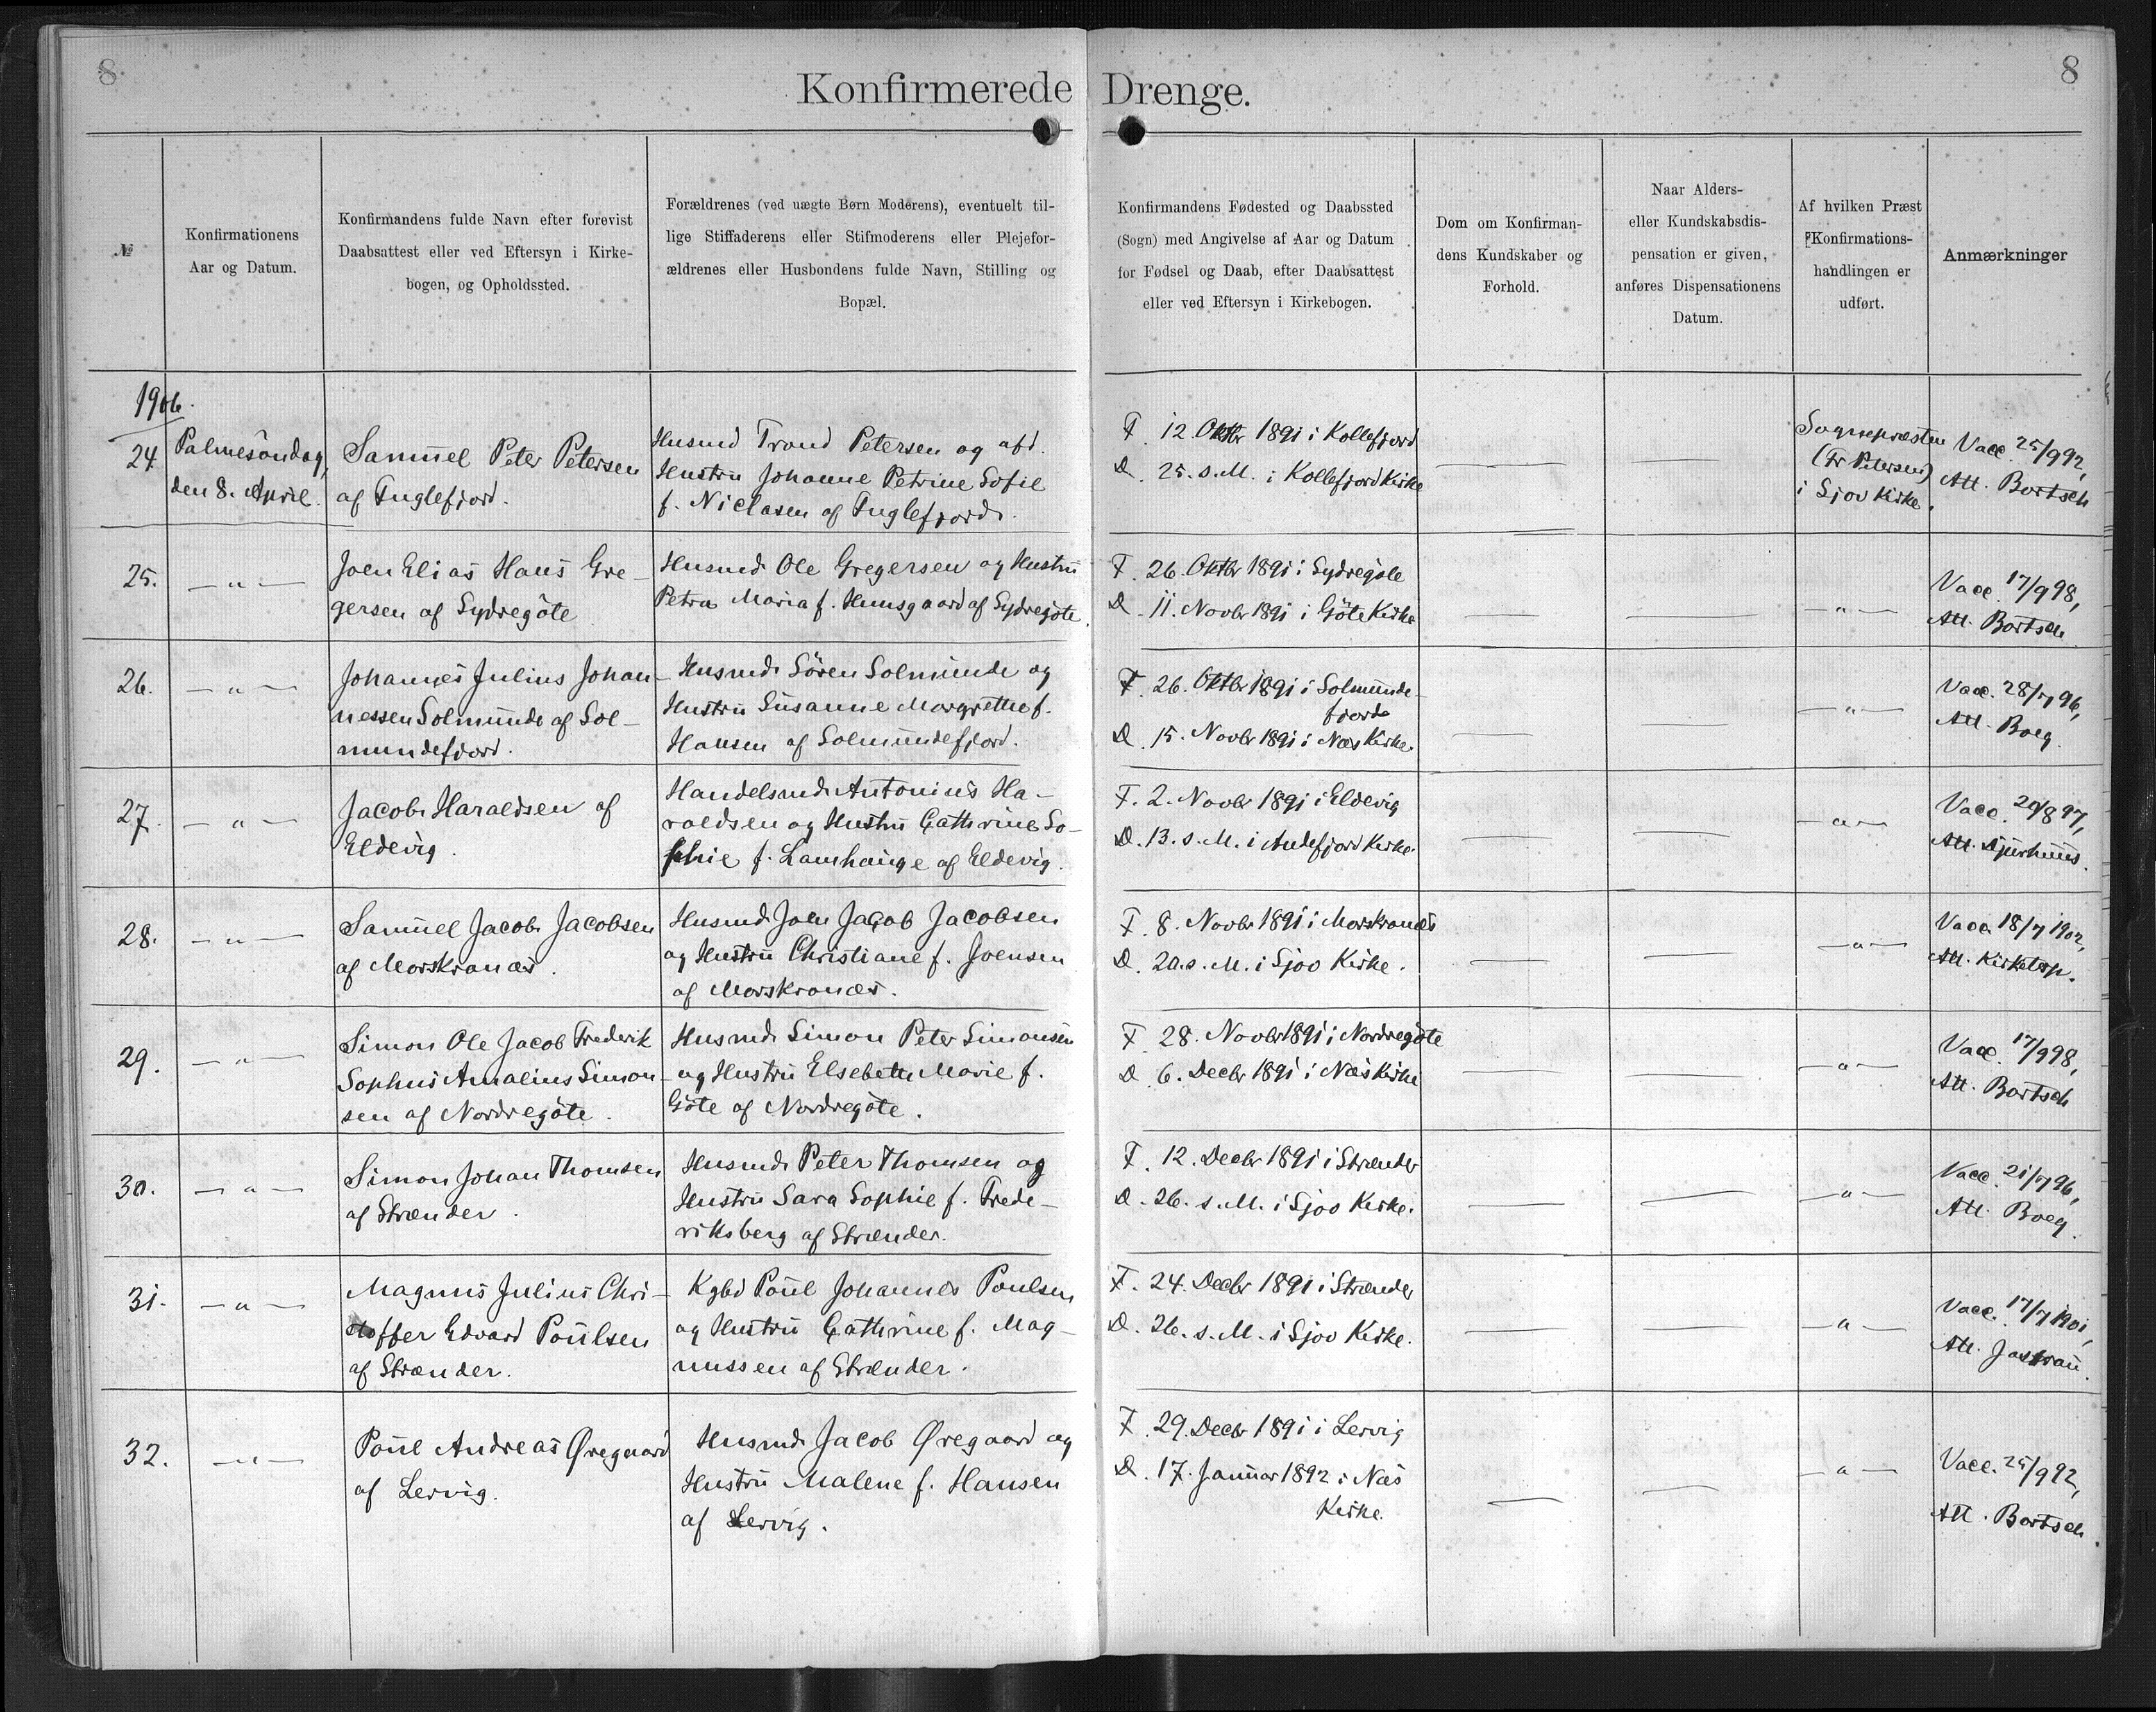 8
8
Konfirmerede Drenge.
№
Konfirmationens
Aar og Datum.
Konfirmandens fulde Navn efter forevist
Daabsattest eller ved Eftersyn i Kirke-
bogen, og Opholdssted.
Forældrenes (ved uægte Børn Moderens), eventuelt til-
lige Stiffaderens eller Stifmoderens eller Plejefor-
ældrenes eller Husbondens fulde Navn, Stilling og
Bopæl.
Konfirmandens Fødested og Daabssted
(Sogn) med Angivelse af Aar og Datum
for Fødsel og Daab, efter Daabsattest
eller ved Eftersyn i Kirkebogen.
Dom om Konfirman-
dens Kundskaber og
Forhold.
Naar Alders-
eller Kundskabsdis-
pensation er given,
anføres Dispensationens
Datum.
Af hvilken Præst
Konfirmations-
handlingen er
udført.
Anmærkninger
1906.
24.
Palmesöndag,
den 8. April.
Samuel Peter Petersen
af Fuglefjord.
Husmd Trond Petersen og afd.
Hustru Johanne Petrine Sofie
f. Niclasen af Fuglefjord.
F. 12. Oktbr 1891 i Kollefjord
D. 25. s. M. i Kollefjord Kirke
Sognepræsten
(Fr Petersen)
i Sjov Kirke.
Vacc. 25/9 92,
Att. Bortsch
25.
— " —
Joen Elias Hans Gre-
gersen af Sydregöte
Husmd Ole Gregersen og Hustru
Petra Maria f. Hunsgaard af Sydregöte.
F. 26. Oktbr 1891 i Sydregöte
D. 11. Novbr 1891 i Göte Kirke
— " —
Vacc. 17/9 98,
Att. Bortsch
26.
— " —
Johannes Julius Johan-
nessen Solmunde af Sol-
mundefjord.
Husmd Sören Solmunde og
Hustru Susanne Margrethe f.
Hansen af Solmundefjord.
F. 26. Oktbr 1891 i Solmunde-
fjord
D. 15. Novbr 1891 i Næs Kirke.
— " —
Vacc. 28/7 96,
Att. Boeg.
27.
— " —
Jacob Haraldsen af
Eldevig.
Handelsmd Antonius Ha-
raldsen og Hustru Cathrine So-
phie f. Lamhauge af Eldevig.
F. 2. Novbr 1891 i Eldevig
D. 13. s. M. i Andefjord Kirke.
— " —
Vacc. 20/8 97,
Att. Djurhuus.
28.
— " —
Samuel Jacob Jacobsen
af Morskranæs.
Husmd Joen Jacob Jacobsen
og Hustru Christiane f. Joensen
af Morskranæs.
F. 8. Novbr 1891 i Morskranæs
D. 20. s. M. i Sjov Kirke.
— " —
Vacc. 18/7 1902,
Att. Kirketerp.
29.
— " —
Simon Ole Jacob Frederik
Sophus Amalius Simon-
sen af Nordregöte.
Husmd Simon Peter Simonsen
og Hustru Elsebeth Marie f.
Göte af Nordregöte.
F. 28. Novbr 1891 i Nordregöte
D. 6. Decbr 1891 i Næs Kirke
— " —
Vacc. 17/9 98,
Att. Bortsch
30.
— " —
Simon Johan Thomsen
af Strænder.
Husmd Peter Thomsen og
Hustru Sara Sophie f. Frede-
riksberg af Strænder.
F. 12. Decbr 1891 i Strænder
D. 26. s. M. i Sjov Kirke.
— " —
Vacc. 21/7 96,
Att. Boeg.
31.
— " —
Magnus Julius Chri-
stoffer Edvard Poulsen
af Strænder.
Kgbd Poul Johannes Poulsen
og Hustru Cathrine f. Mag-
nussen af Strænder.
F. 24. Decbr 1891 i Strænder
D. 26. s. M. i Sjov Kirke.
— " —
Vacc. 17/7 1901,
Att. Jastrau.
32.
— " —
Poul Andreas Øregaard
af Lervig.
Husmd Jacob Øregaard og
Hustru Malene f. Hansen
af Lervig.
F. 29. Decbr 1891 i Lervig
D. 17. Januar 1892 i Næs
Kirke.
— " —
Vacc. 25/9 92,
Att. Bortsch.